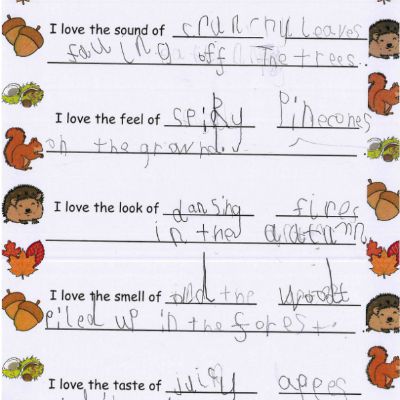 I love the sound of crunchy leaves
falling off The trees.
I love the feel of spiky Pinecones
on the ground.
I love the look of dansing fires
in the
I love the smell of old the wood
piled up in the forest.
I love the taste of juicy appes